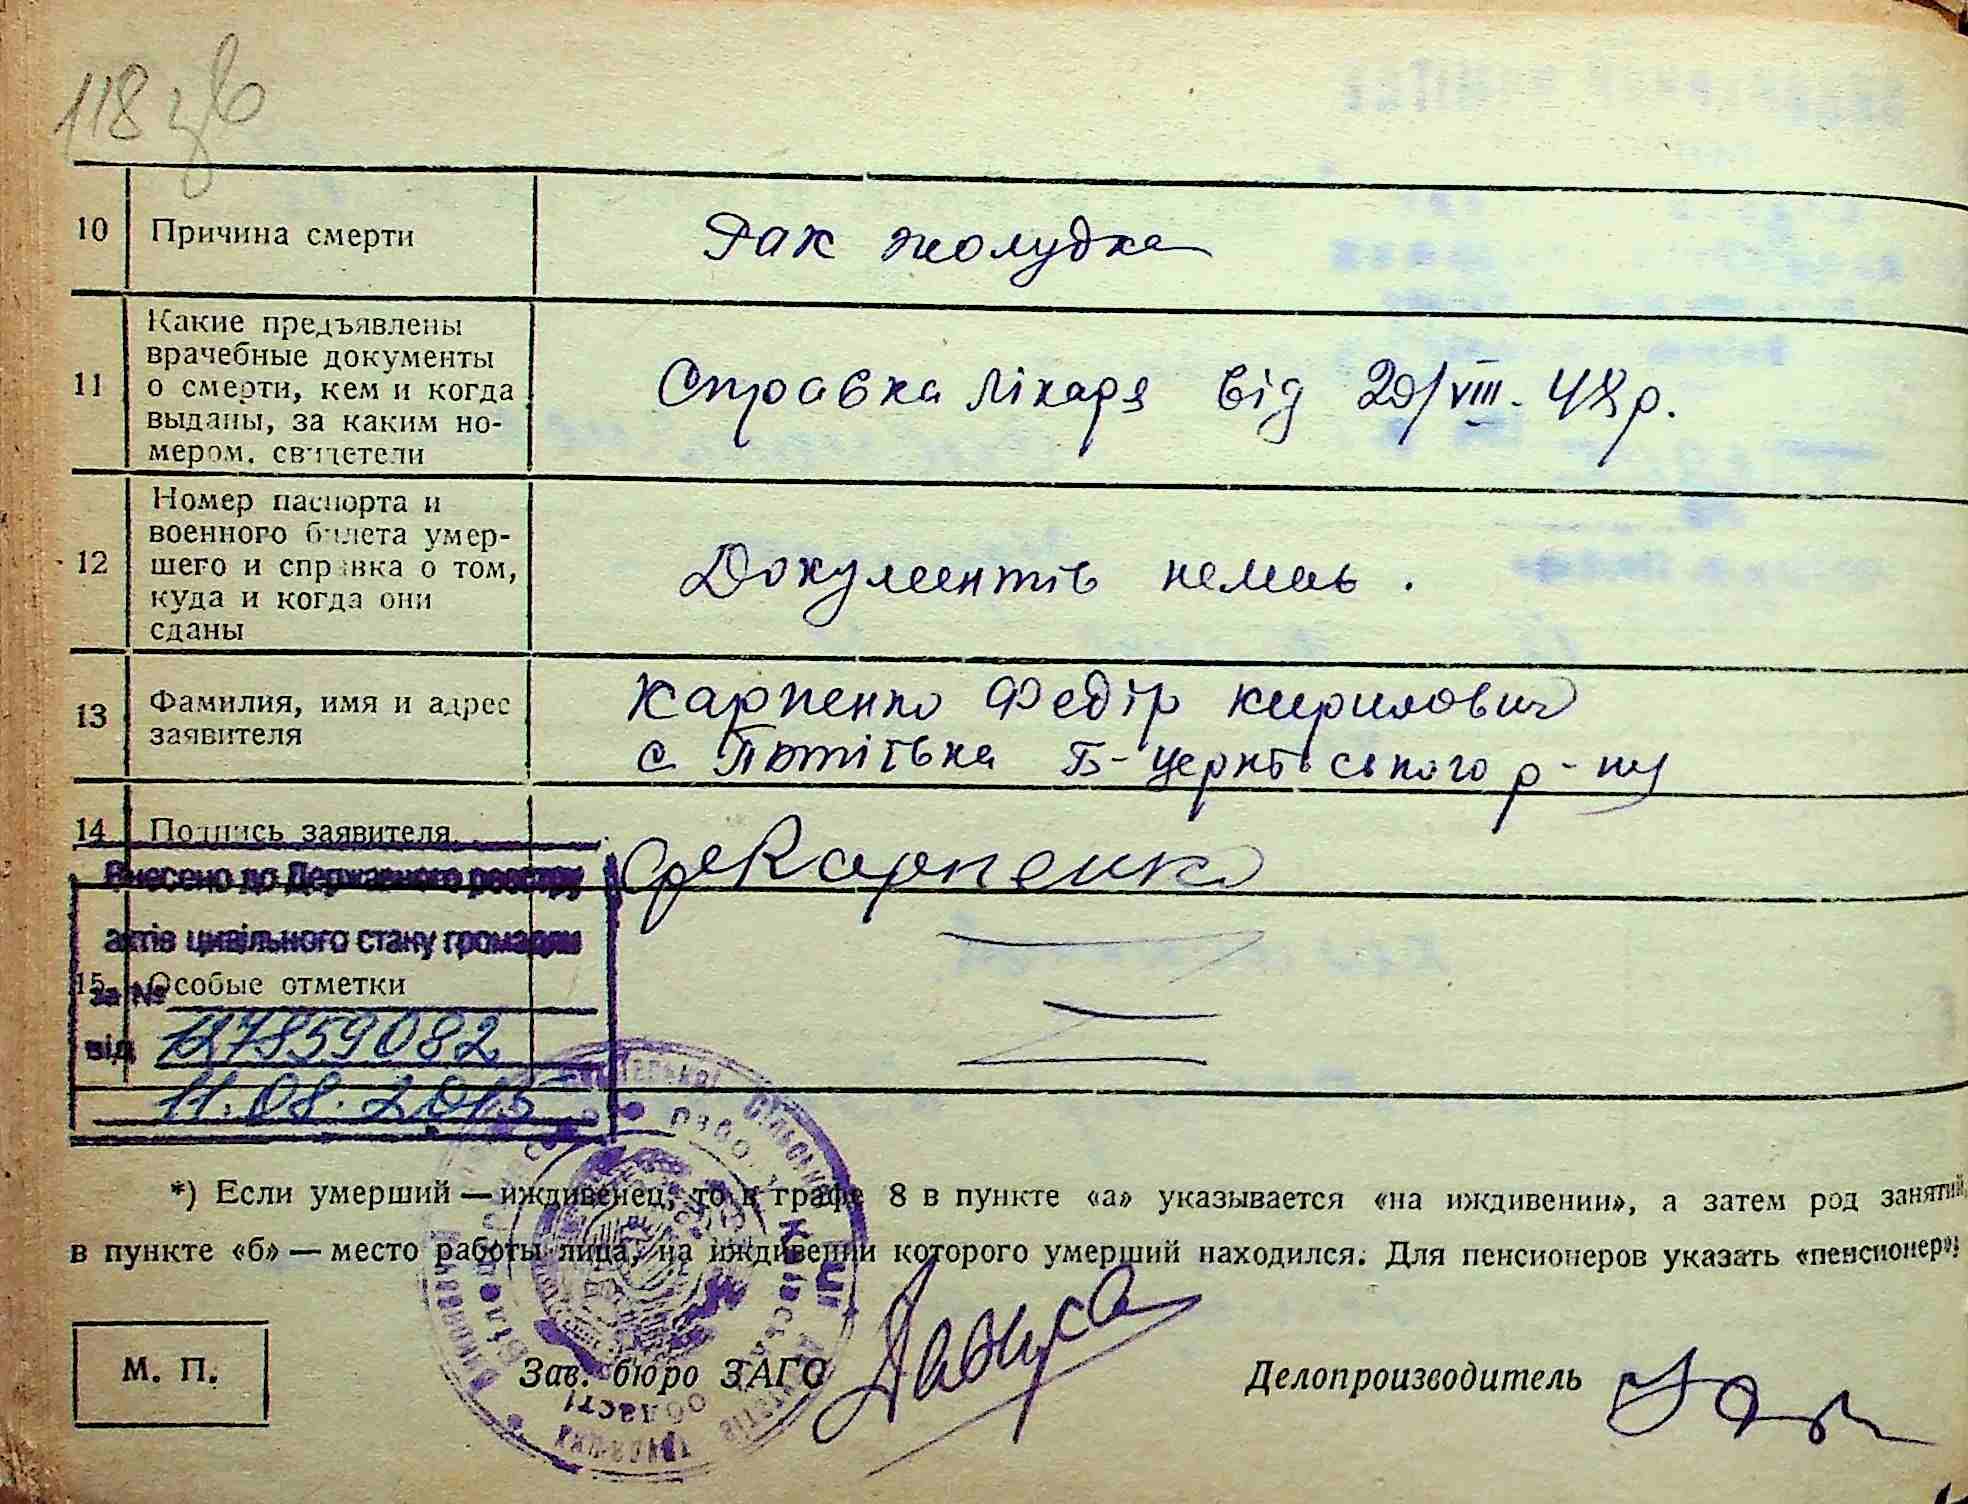 118 зв
10 Причина смерти Рак жолудка
11 Какие предъявлены
врачебные документы
о смерти, кем и когда
выданы, за каким но-
мером, свидетели
Справка лікаря від 20/VIII. 48 р.
12 Номер паспорта и
военного билета умер-
шего и справка о том,
куда и когда они
сданы
Документів немає.
13 Фамилия, имя и адрес
заявителя
Карпенко Федір Кирилович
с. Б-Церківського р-ну
14 Подпись заявителя
Карпенко
Внесено до Державного реєстру
актів цивільного стану громадян
15 Особые отметки
за №
127859082
від
11.08.2015
*) Если умерший — иждивенец, то в графе 8 в пункте «а» указывается «на иждивении», а затем род занятий,
в пункте «б» — место работы лица, на иждивении которого умерший находился. Для пенсионеров указать «пенсионер»,
М. П.
Зав. бюро ЗАГС
Делопроизводитель